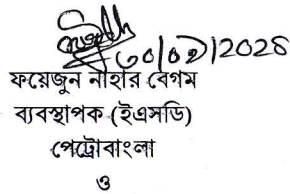 ৩০/০১/2025
ফয়েজুন নাহার বেগম
ব্যবস্থাপক (ইএসডি)
পেট্রোবাংলা
ও